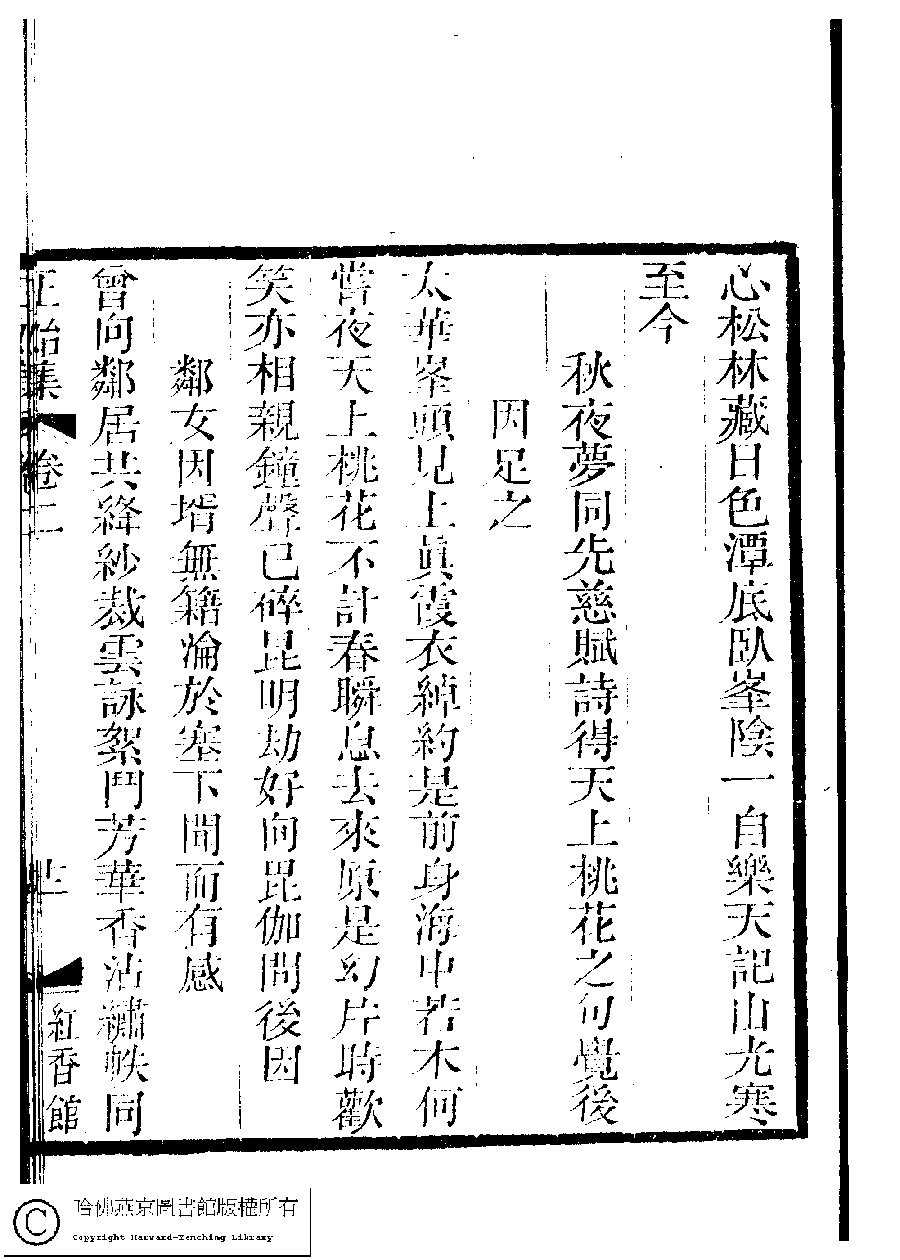 心松林藏日色潭底臥峯陰一自樂天記山光寒
至今
秋夜夢同先慈賦詩得天上桃花之句覺後
因足之
太華峯頭見上眞霞衣綽約是前身海中若木何
嘗夜天上桃花不計春瞬息去來原是幻片時歡
笑亦相親鐘聲已碎昆明劫好向毘伽問後因
鄰女因壻無籍淪於塞下聞而有感
曾向鄰居共絳紗裁雲詠絮鬥芳華香沾繡帙同
正始集 卷二 廿 紅香館
哈佛燕京圖書館版權所有
Copyright Harvard-Yenching Library